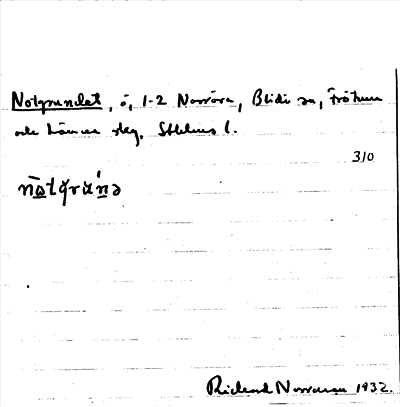 Notgrundet, ö, 1-2 Norröra, Blidö sn, Frötuna
och Länna skg. Sthlms l.
310
nōtgrɯ́nə
Rickard Norrman 1932.